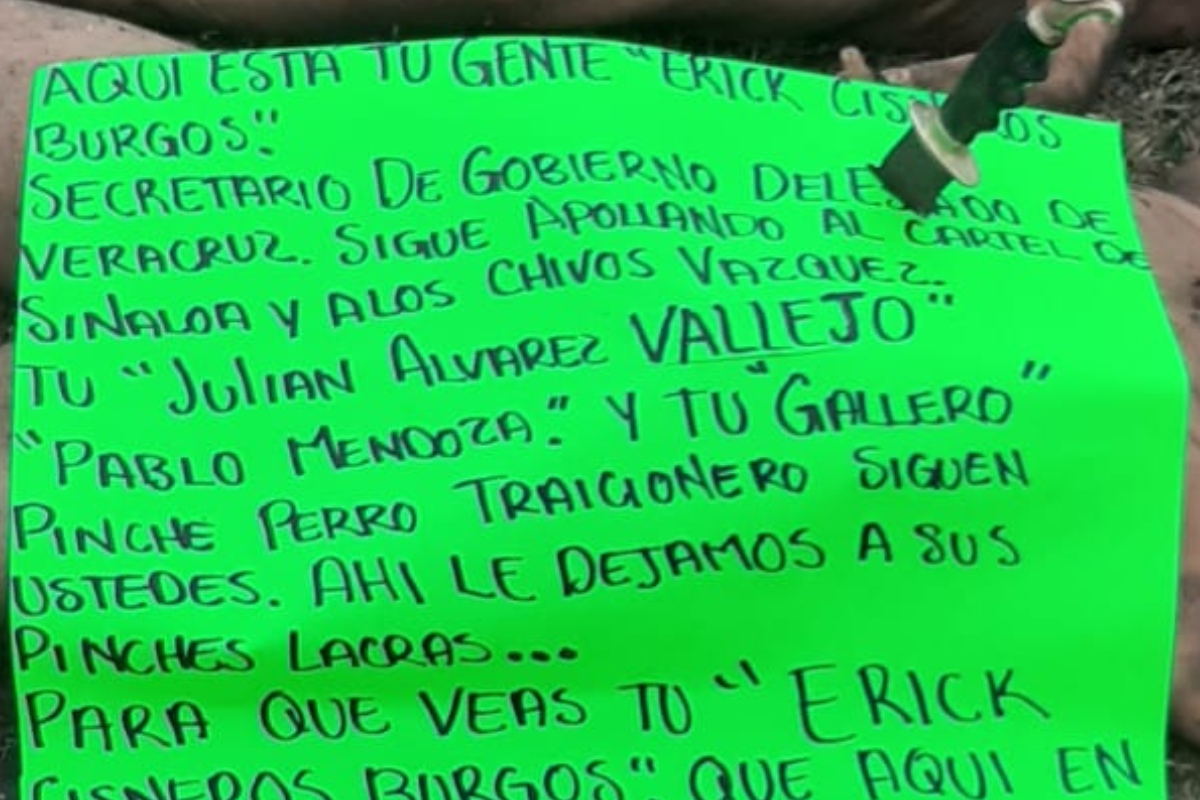 AQUI ESTA TU GENTE "ERICK
BURGOS".
SECRETARIO DE GOBIERNO DE
VERACRUZ. SIGUE APOLLANDO AL CARTEL DE
SINALOA Y ALOS CHIVOS VAZQUEZ.
TU "JULIAN ALVAREZ VALLEJO"
"PABLO MENDOZA." Y TU "GALLERO"
PINCHE PERRO TRAICIONERO SIGUEN
USTEDES. AHI LE DEJAMOS A SUS
PINCHES LACRAS...
PARA QUE VEAS TU "ERICK
CISNEROS BURGOS" QUE AQUI EN